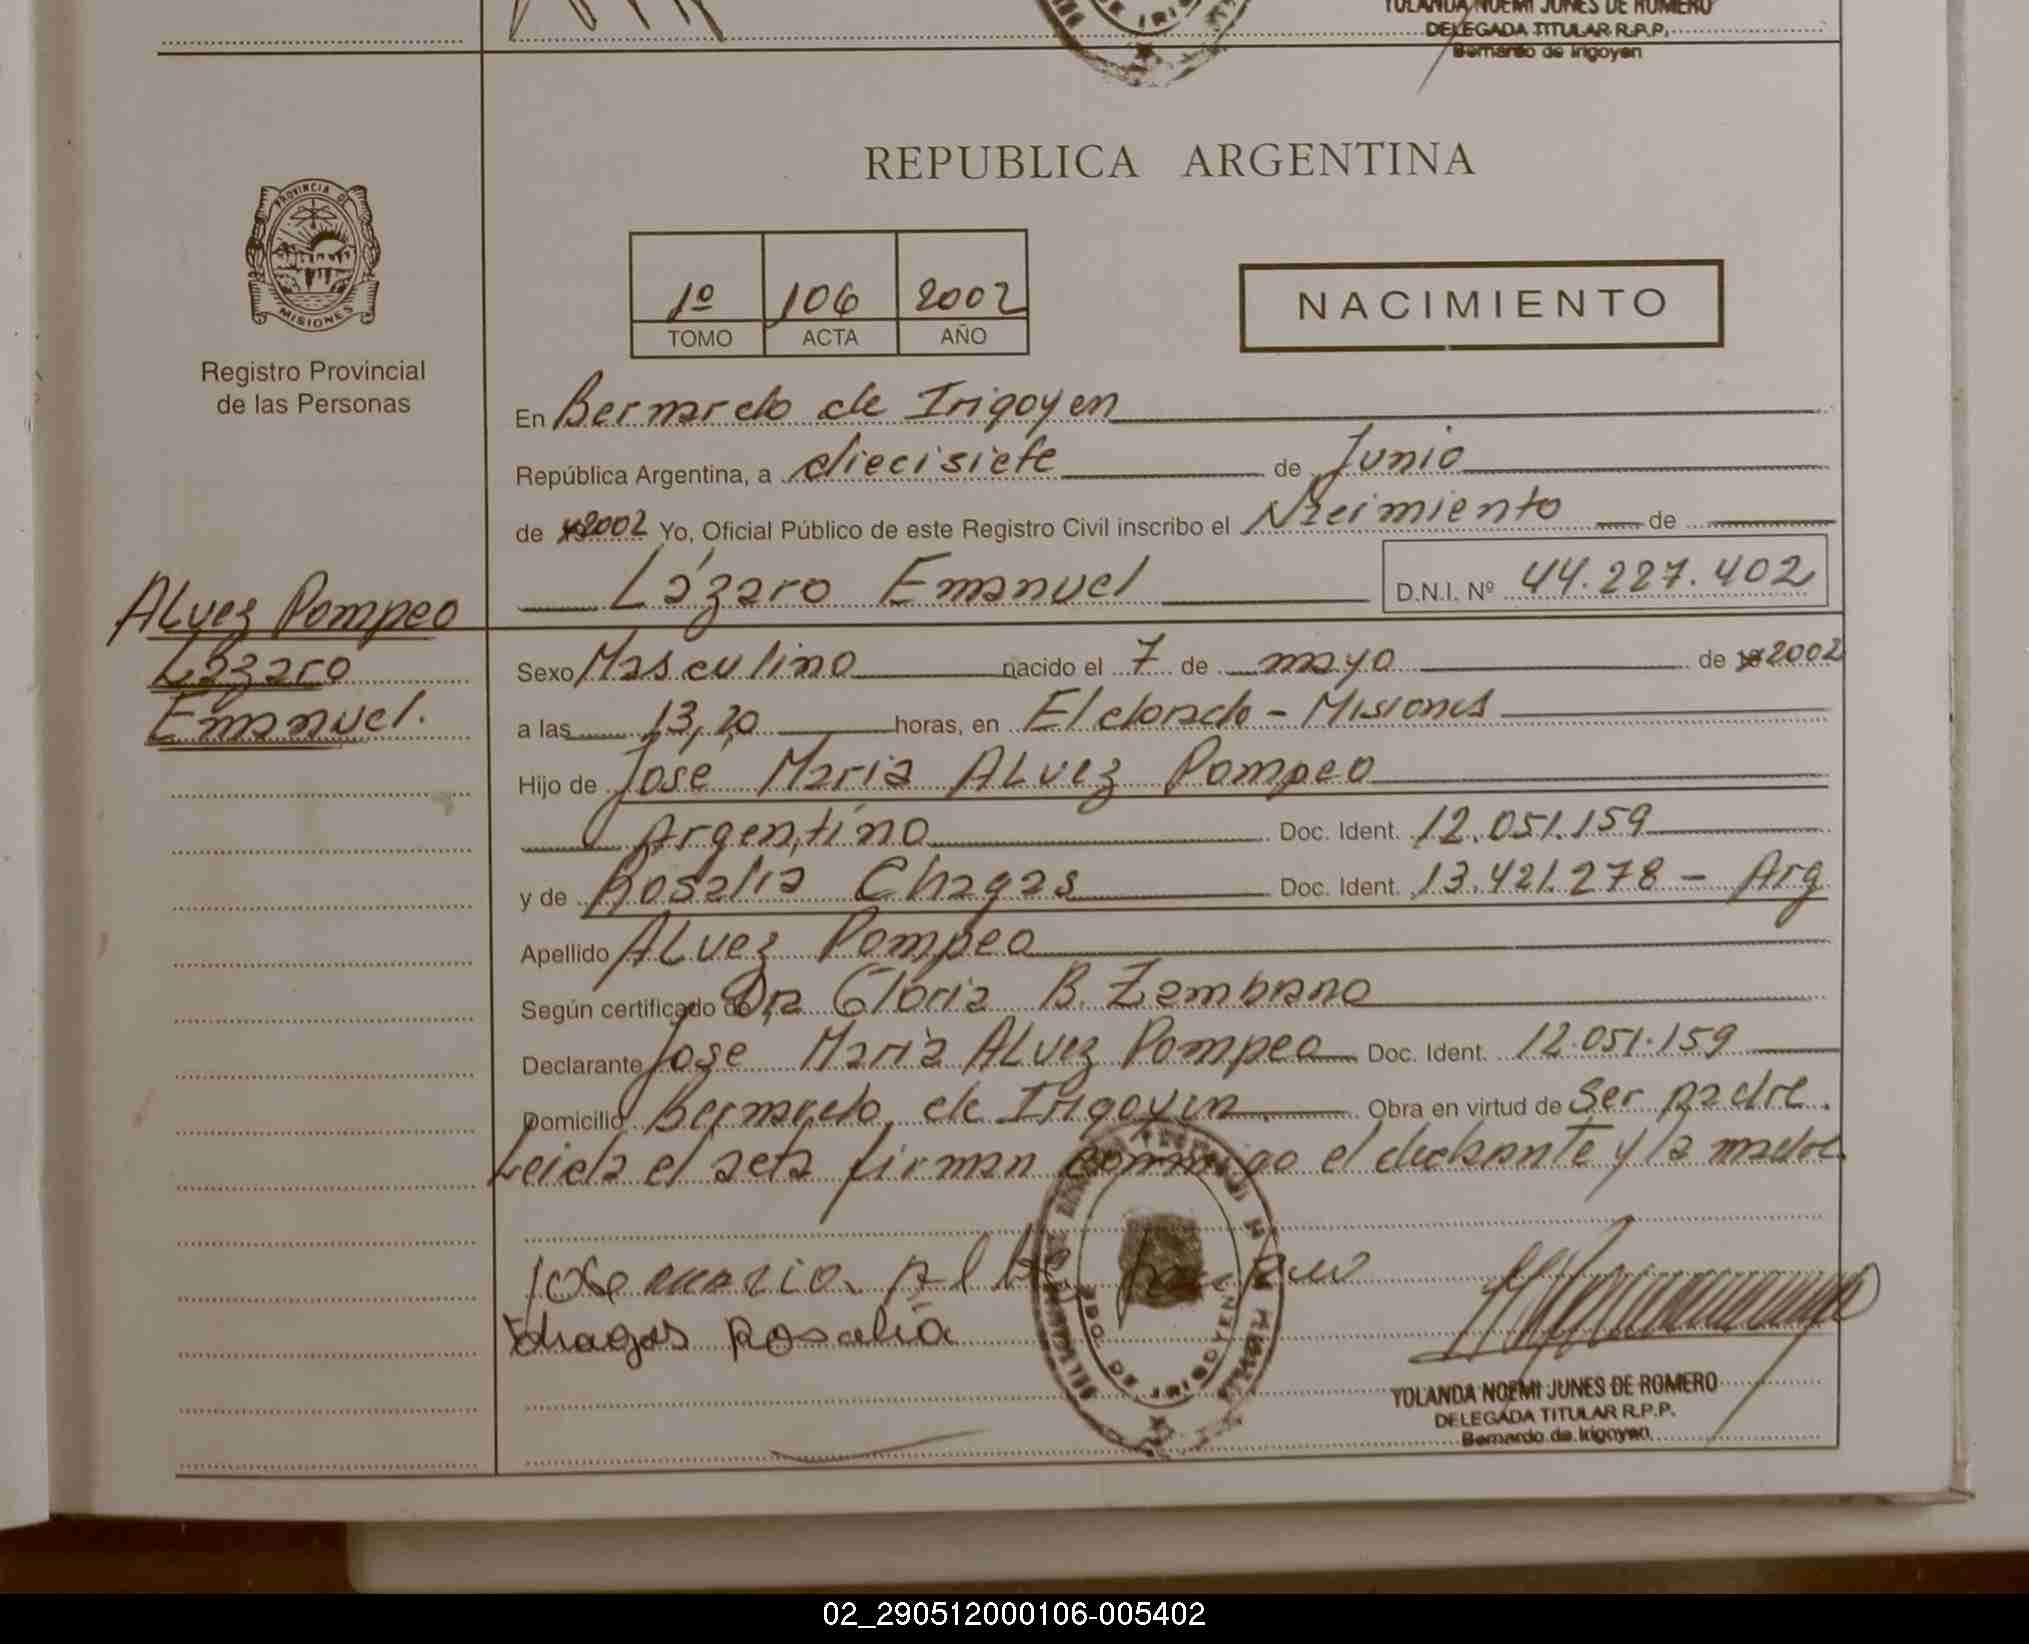 YOLANDA NOEMI JUNES DE ROMERO
DELEGADA TITULAR R.P.P.
Bernardo de Irigoyen
REPUBLICA ARGENTINA
PROVINCIA DE
MISIONES
Registro Provincial
de las Personas
1º 106 2002
TOMO ACTA AÑO
NACIMIENTO
En Bernardo de Irigoyen
República Argentina, a diecisiete de Junio
de 2002 Yo, Oficial Público de este Registro Civil inscribo el Nacimiento de
Lázaro Emanuel D.N.I. Nº 44.227.402
ALvez Pompeo
Lázaro
Emanuel.
Sexo Masculino nacido el 7 de mayo de 2002
a las 13,20 horas, en Eldorado - Misiones
Hijo de José Maria ALvez Pompeo
Argentino Doc. Ident. 12.051.159
y de Rosalia Chagas Doc. Ident. 13.421.278 - Arg
Apellido ALvez Pompeo
Según certificado de Dra Gloria B. Zambrano
Declarante Jose Maria ALvez Pompeo Doc. Ident. 12.051.159
Domicilio Bernardo de Irigoyen Obra en virtud de Ser padre.
Leida el acta firman conmigo el declarante y la madre
Jose maria
chagas Rosalia
BDO. DE IRIGOYEN
YOLANDA NOEMI JUNES DE ROMERO
DELEGADA TITULAR R.P.P.
Bernardo de Irigoyen
02_290512000106-005402